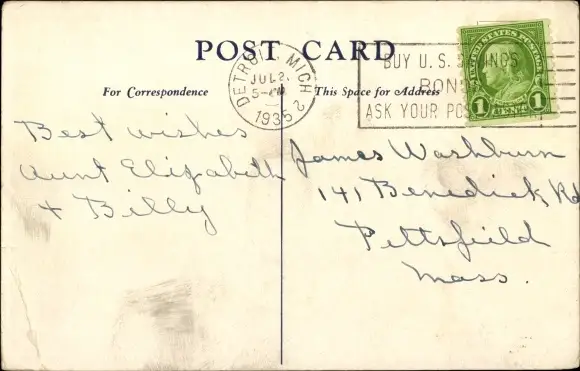 POST CARD
For Correspondence
This Space for Address
DETROIT, MICH
JUL 2
5-PM
1935
2
BUY U.S. SAVINGS
BONDS
ASK YOUR POS
UNITED STATES POSTAGE
1 CENTS 1
Best wishes
Aunt Elizabeth
+ Billy
James Washburn
141 Benedick Rd
Pittsfield
Mass.